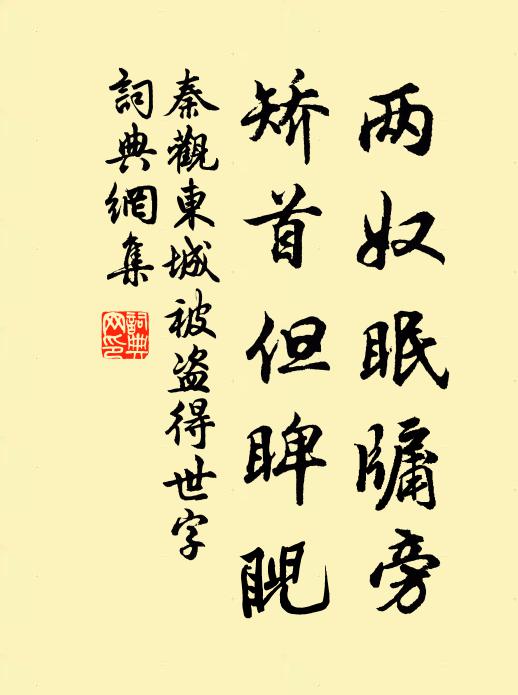 两奴眠牗旁
矫首但睥睨
秦觀東城被盗得世字
詞典網集
詞典网印